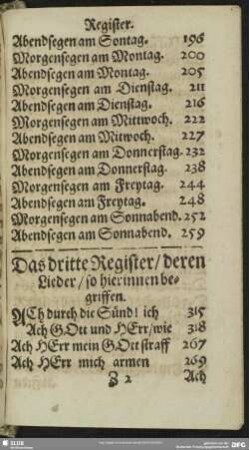 Register.
Abendsegen am Sontag. 196
Morgensegen am Montag. 200
Abendsegen am Montag. 205
Morgensegen am Dienstag. 211
Abendsegen am Dienstag. 216
Morgensegen am Mittwoch. 222
Abendsegen am Mitwoch. 227
Morgensegen am Donnerstag. 232
Abendsegen am Donnerstag. 238
Morgensegen am Freytag. 244
Abendsegen am Freytag. 248
Morgensegen am Sonnabend. 252
Abendsegen am Sonnabend. 259
Das dritte Register/ deren
Lieder/ so hierinnen be-
griffen.
ACh durch die Sünd! ich 315
Ach GOtt und HErr/ wie 318
Ach HErr mein GOtt straff 267
Ach HErr mich armen 269
Z 2 Ach
SLUB